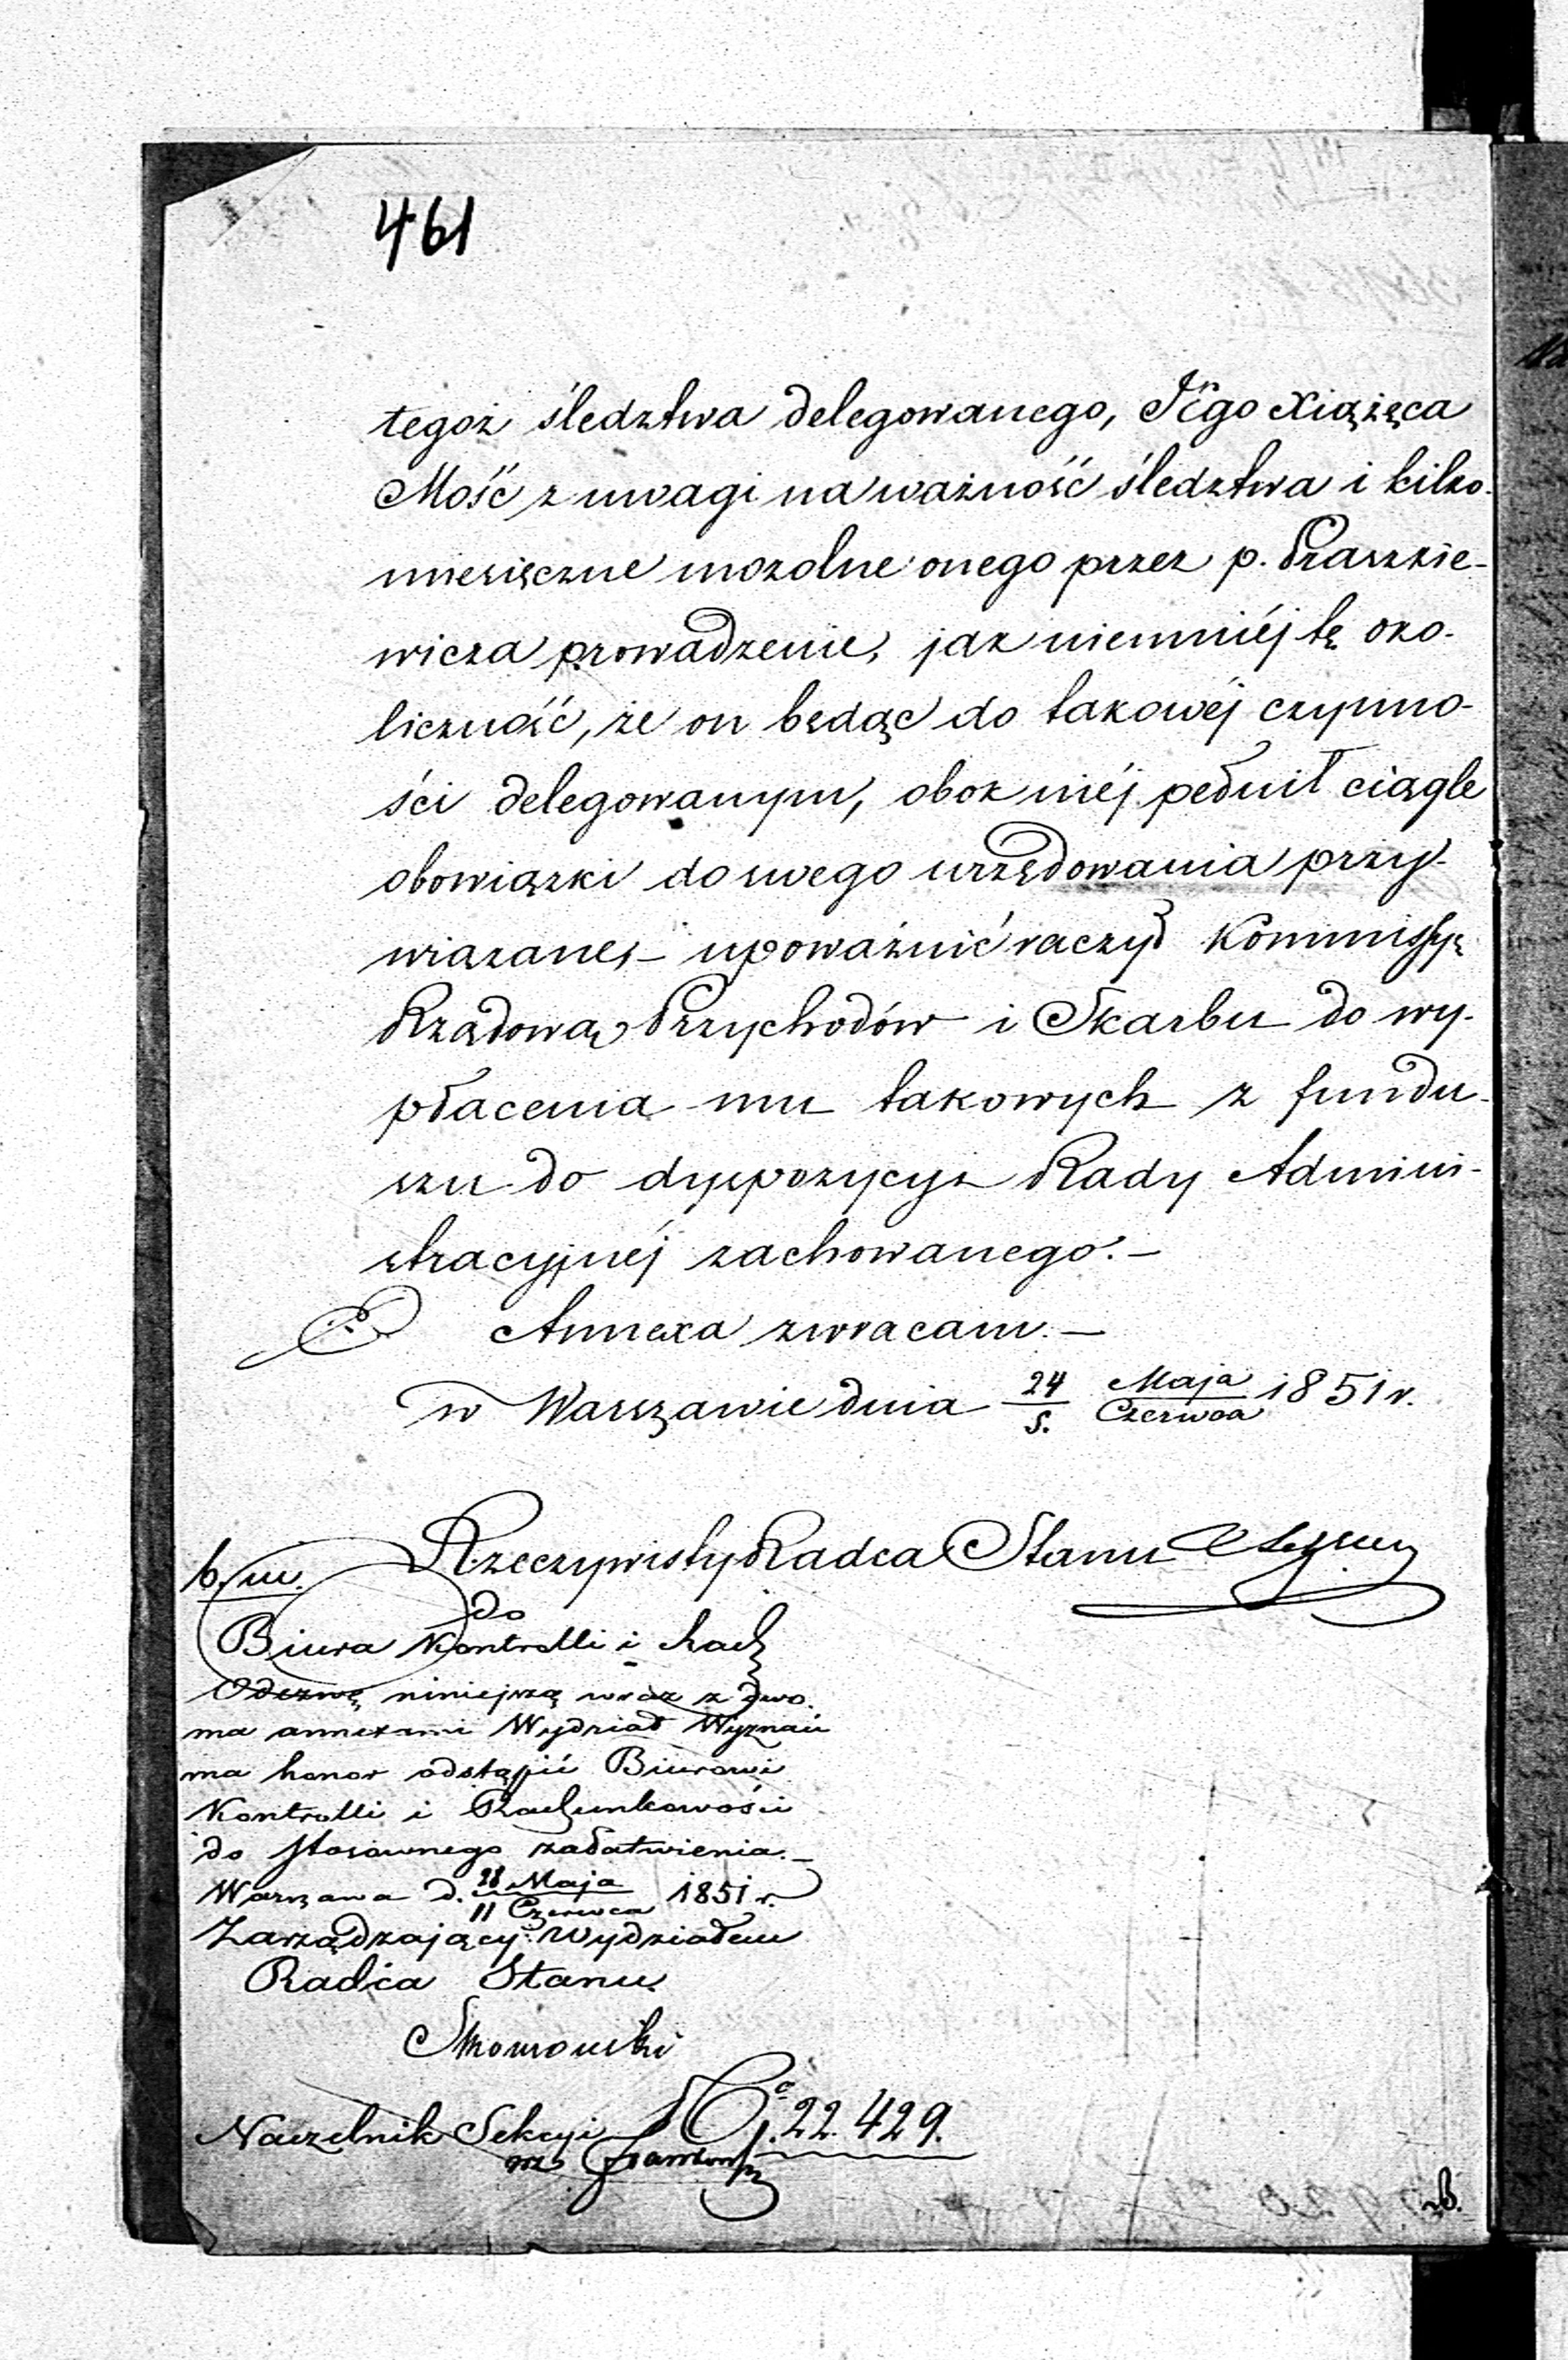 461
tegoż śledztwa delegowanego, JOgo Xiążęca
Mość z uwagi na ważność śledztwa i kilko-
miesięczne mozolne onego przez p. Praszkie-
wicza prowadzenie, jak niemniéj tę oko-
liczność, że on będąc do takowéj czynno-
ści delegowanym, obok niéj pełnił ciągle
obowiązki do swego urzędowania przy-
wiązane, – upoważnić raczył Kommissyę
Rządową Przychodów i Skarbu do wy-
płacenia mu takowych z fundu-
szu do dyspozycyi Rady Admini-
stracyjnéj zachowanego. –
Annexa zwracam. –
w Warszawie dnia 24/5. Maja/Czerwca 1851 r.
Rzeczywisty Radca Stanu
b. m.
do
Biura Kontrolli i Rach
Odezwę niniejszą wraz z dwo-
ma annexami Wydział Wyznań
ma honor odstąpić Biurowi
Kontrolli i Rachunkowości
do stosownego załatwienia. –
Warszawa d. 28/11 Maja/Czerwca 1851 r.
Zarządzający Wydziałem
Radca Stanu
Naczelnik Sekcyi
22.429.